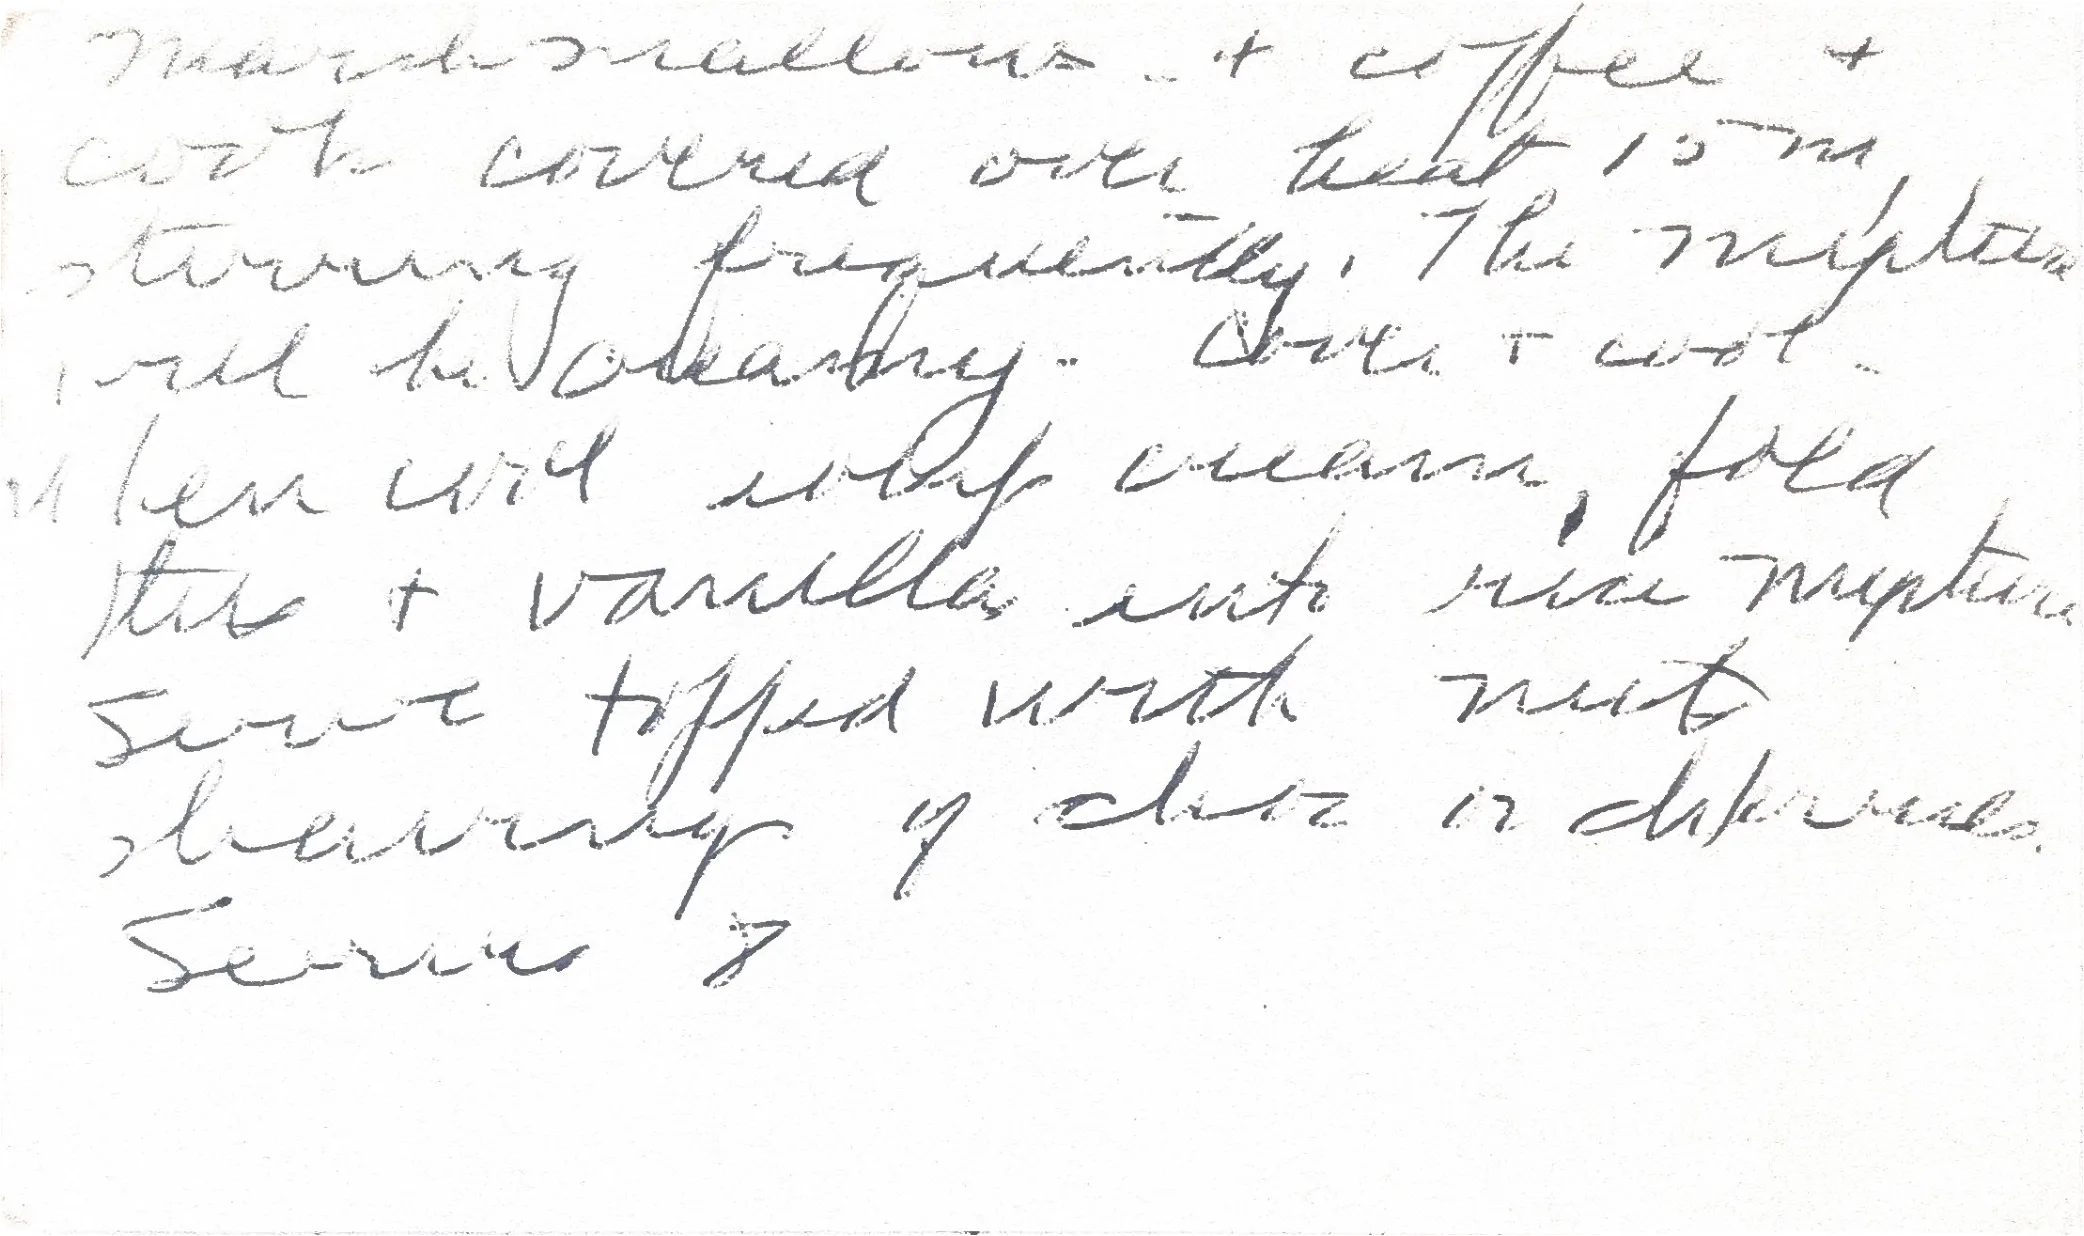 marshmallows + coffee +
cook covered over heat 15 m,
stirring frequently. The mixture
will be creamy. Cover + cool.
When cool whip cream, fold
this + vanilla into rice mixture
Serve topped with nuts
shavings of choc or
Serves 8